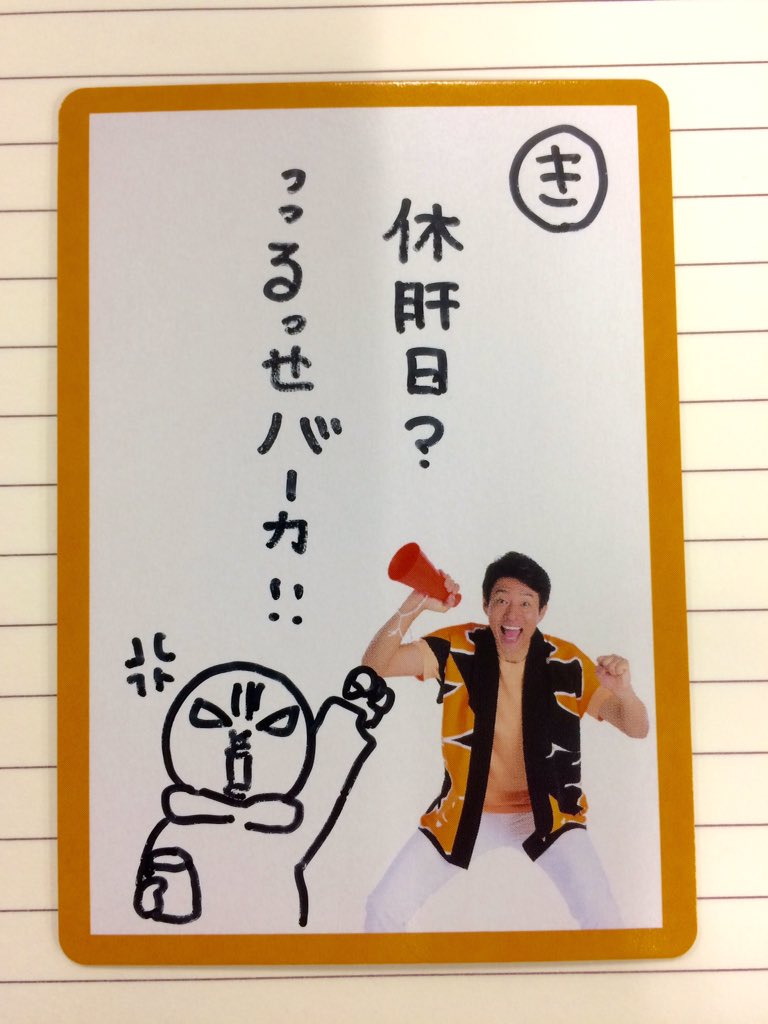 き
休肝日?
っっるっせバーカ!!